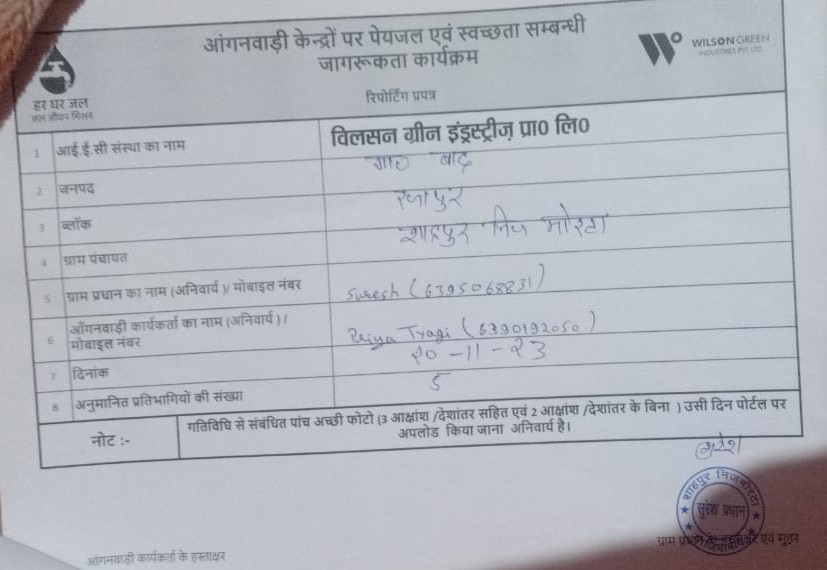 आंगनवाड़ी केन्द्रों पर पेयजल एवं स्वच्छता सम्बन्धी
जागरूकता कार्यक्रम
WILSON GREEN
INDUSTRIES PVT LTD
हर घर जल
जल जीवन मिशन
रिपोर्टिंग प्रपत्र
1 आई.ई.सी संस्था का नाम विलसन ग्रीन इंडस्ट्रीज़ प्रा0 लि0
2 जनपद
3 ब्लॉक रजापुर
4 ग्राम पंचायत शाहपुर निज मोरटा
5 ग्राम प्रधान का नाम (अनिवार्य)/ मोबाइल नंबर Suresh (6395068231)
6 आँगनवाड़ी कार्यकर्ता का नाम (अनिवार्य) /
मोबाइल नंबर Priya Tyagi (6390192050)
7 दिनांक 20-11-23
8 अनुमानित प्रतिभागियों की संख्या 5
नोट :- गतिविधि से संबंधित पांच अच्छी फोटो (3 आक्षांश /देशांतर सहित एवं 2 आक्षांश /देशांतर के बिना ) उसी दिन पोर्टल पर
अपलोड किया जाना अनिवार्य है।
सुरेश
शाहपुर निजमोरटा
सुरेश प्रधान
आंगनवाड़ी कार्यकर्ता के हस्ताक्षर
ग्राम प्रधान के हस्ताक्षर एवं मुहर